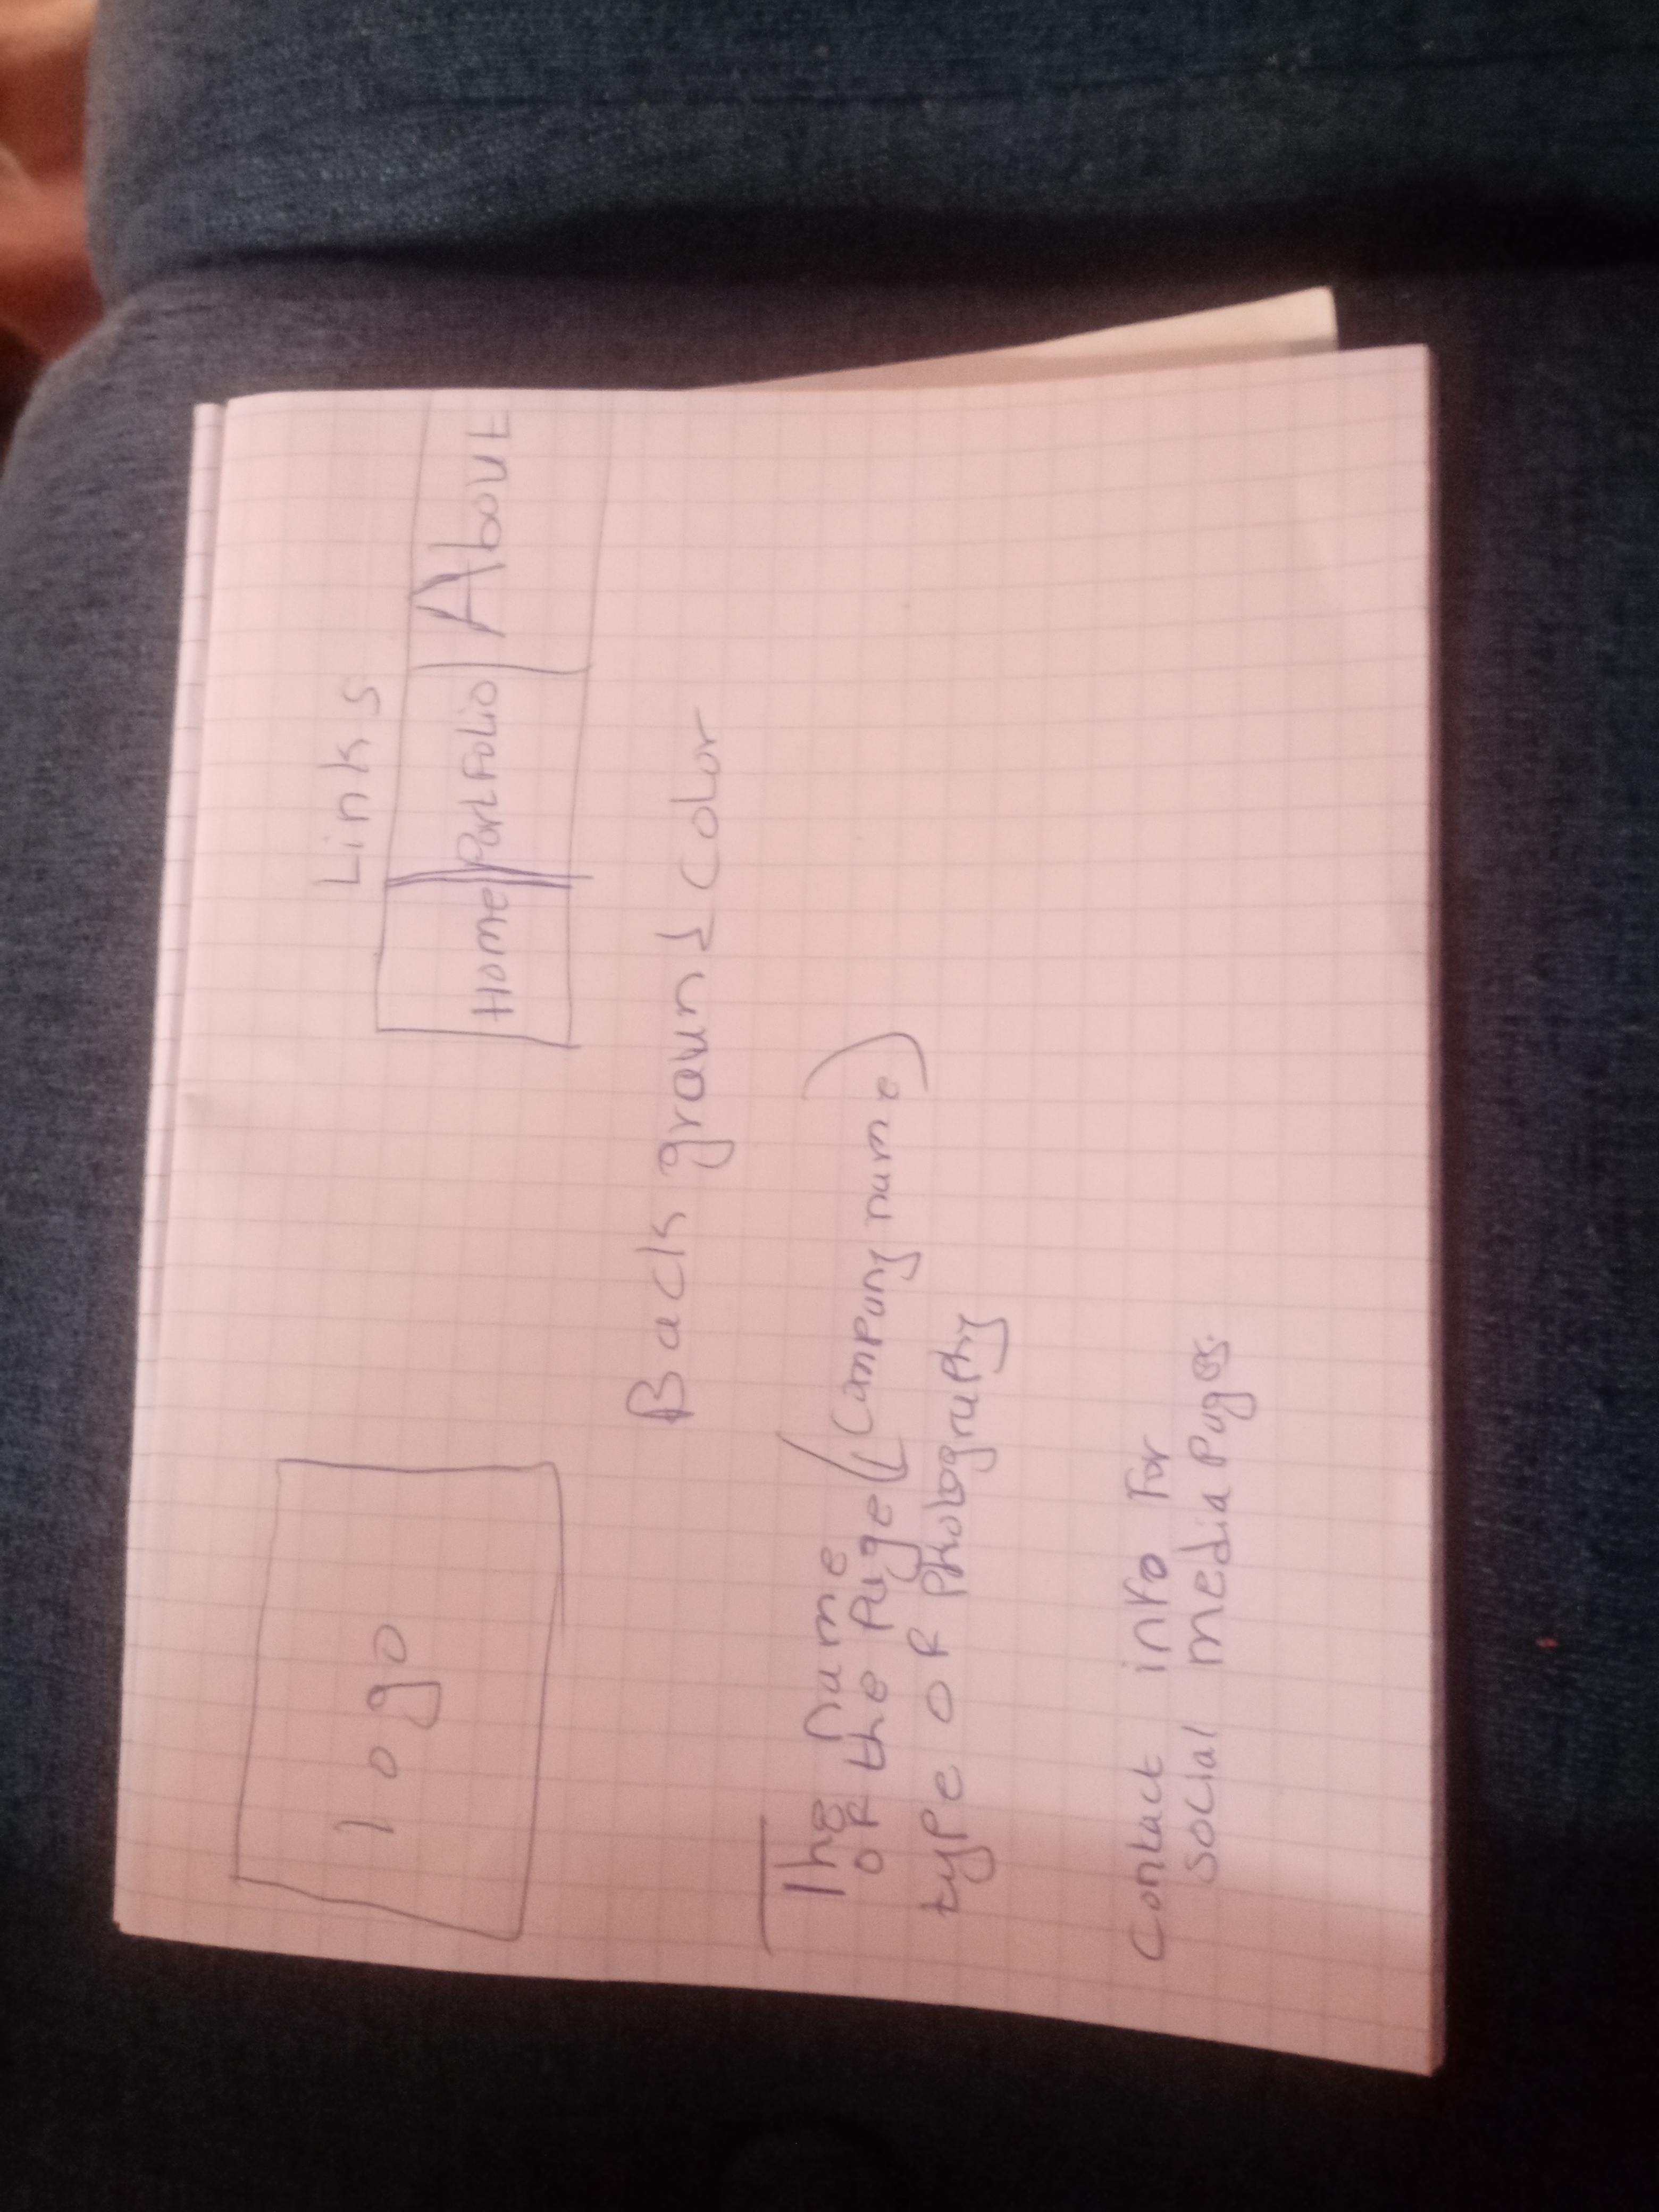 Links
logo
Home Portfolio About
Background color
The name
of the page (Company name)
type of photography
contact info for
social media pages.